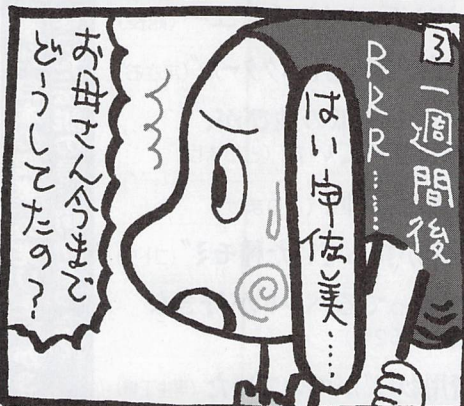 3
一週間後
RRR……
はい宇佐美……
お母さん今まで
どうしてたの？